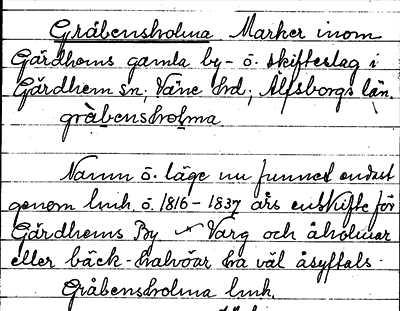 Gråbensholma Marker inom
Gärdhems gamla by- o. skifteslag i
Gärdhem sn; Väne hd; Älfsborgs län.
gràbensholma
Namn o. läge nu funnet endast
genom lmh. o. 1816-1837 års enskifte för
Gärdhems By Varg och åholmar
eller bäck-halvöar ha väl åsyftats.
Gråbensholma lmh.